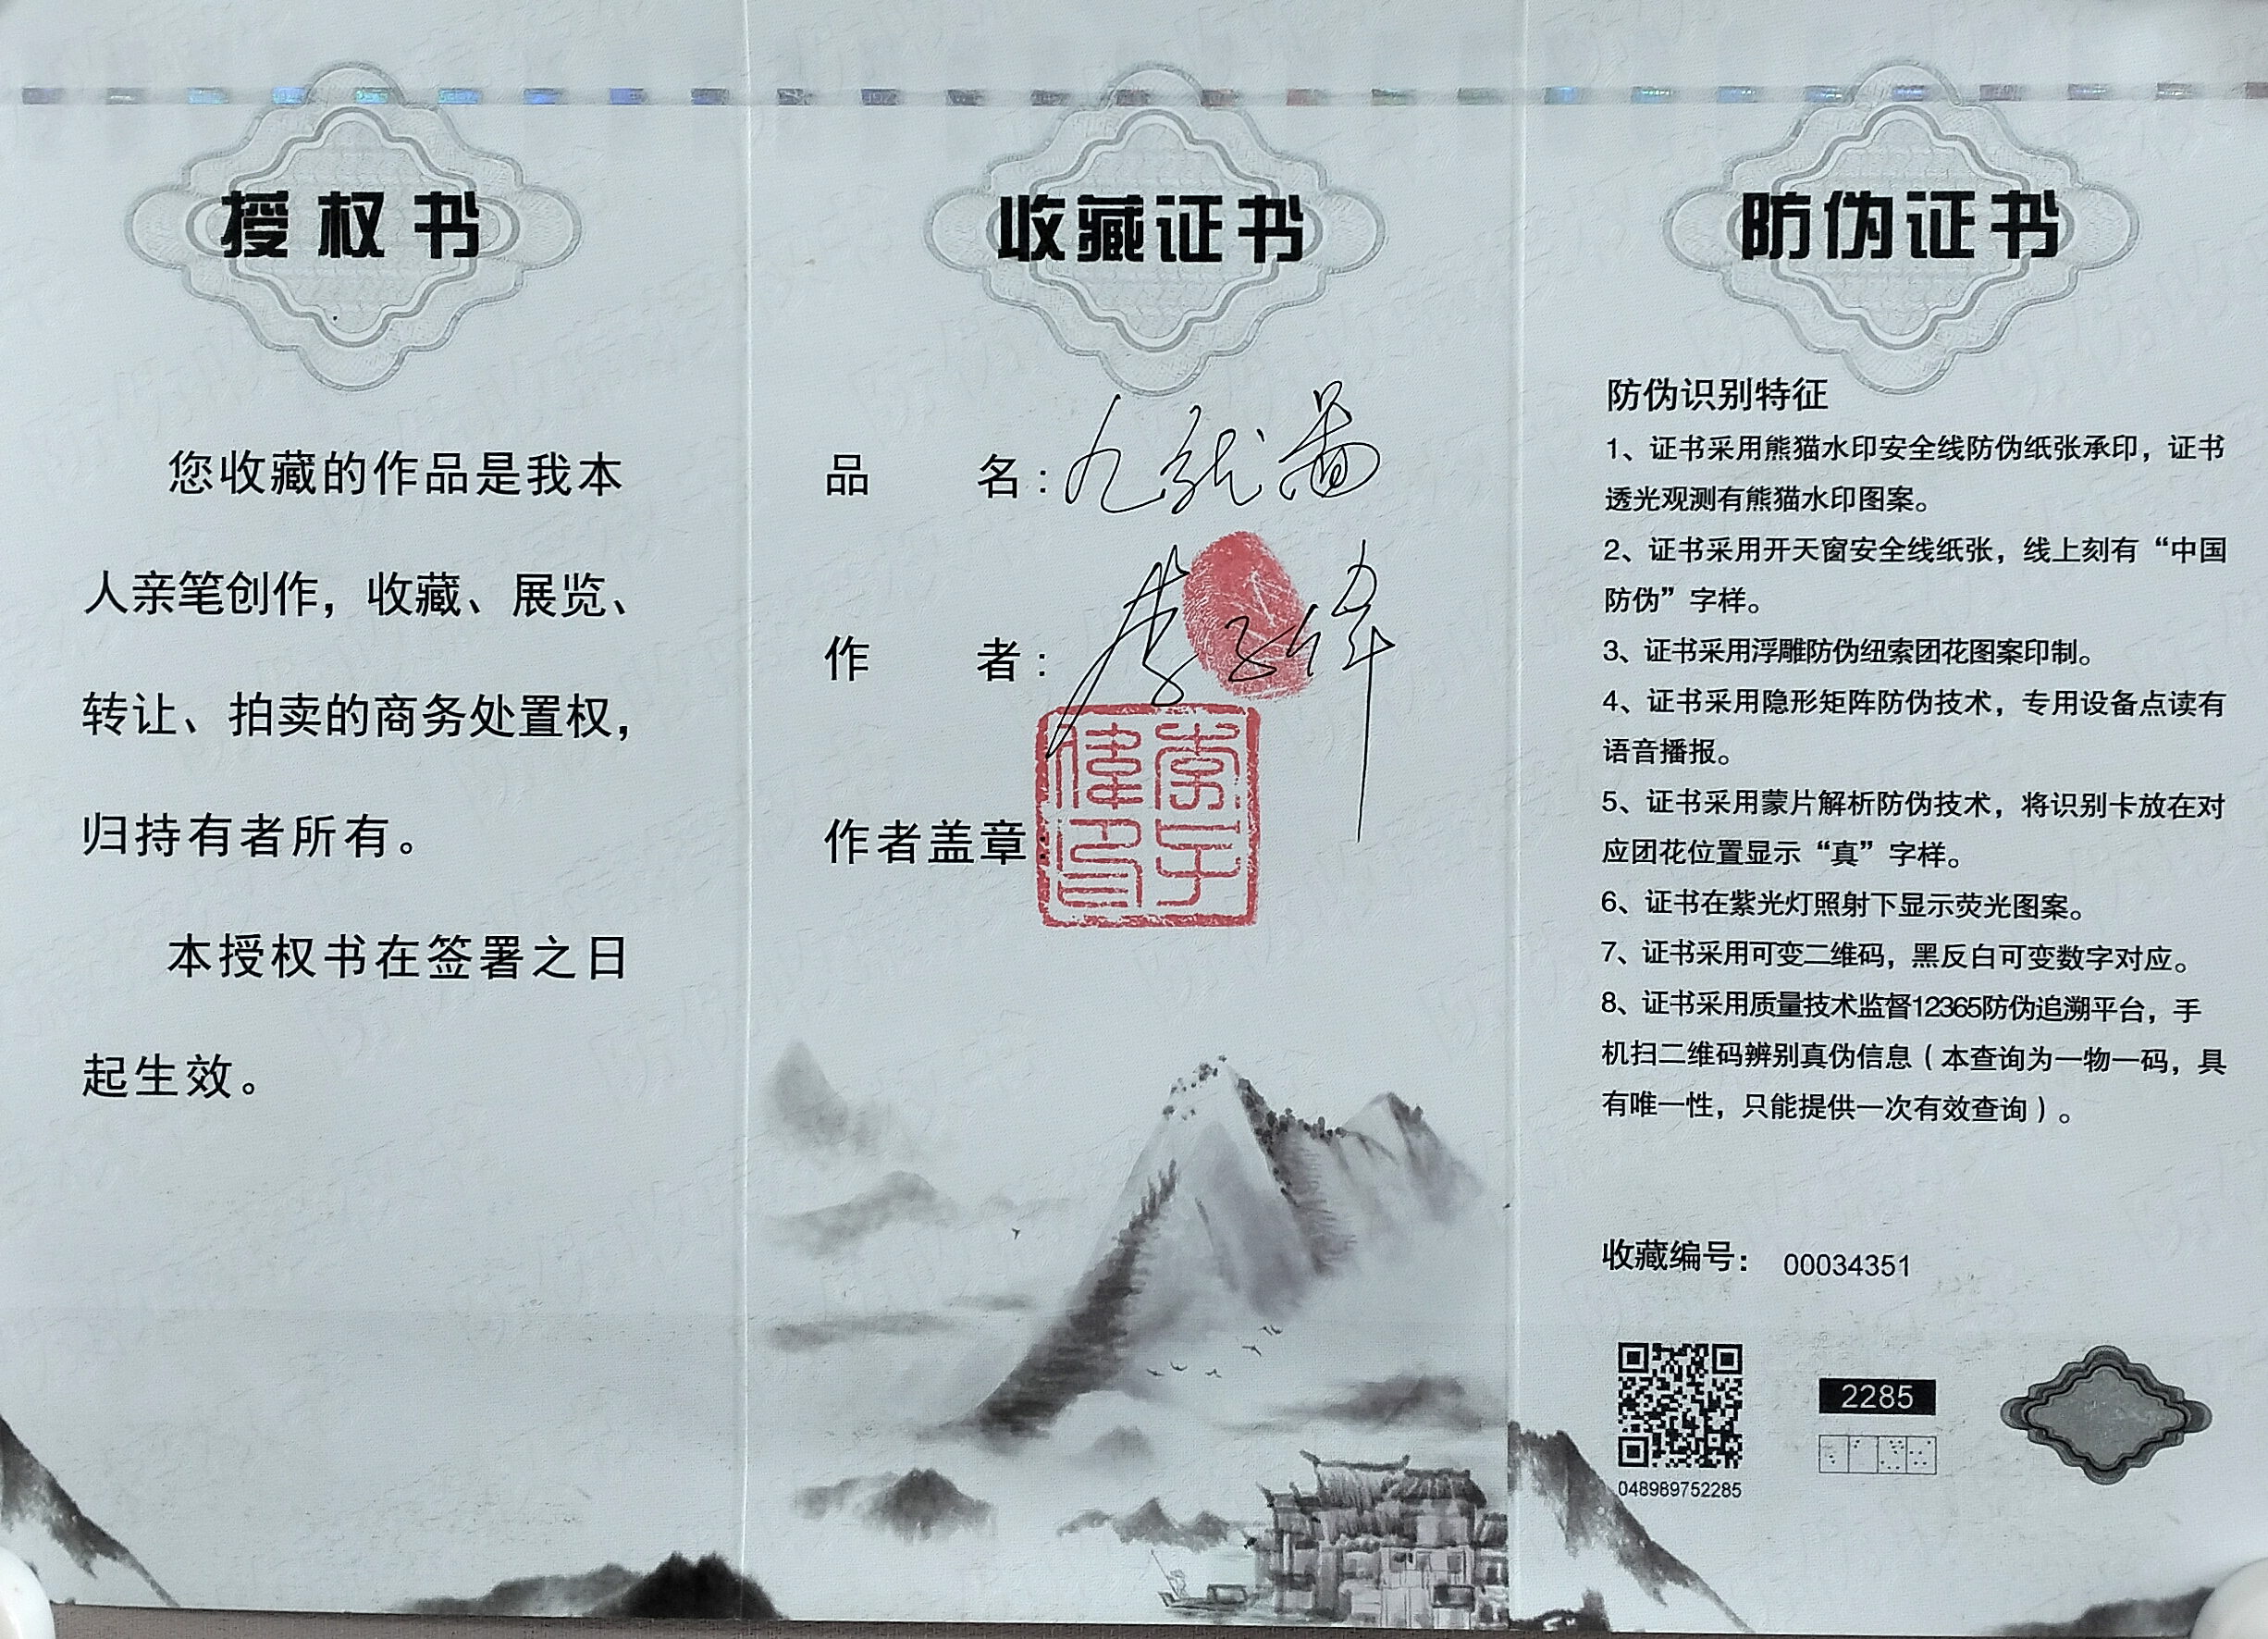 授权书
您收藏的作品是我本
人亲笔创作，收藏、展览、
转让、拍卖的商务处置权，
归持有者所有。
本授权书在签署之日
起生效。
收藏证书
品名：九龙图
作者：李子伟
作者盖章：
李子
偉印
防伪证书
防伪识别特征
1、证书采用熊猫水印安全线防伪纸张承印，证书
透光观测有熊猫水印图案。
2、证书采用开天窗安全线纸张，线上刻有“中国
防伪”字样。
3、证书采用浮雕防伪纽索团花图案印制。
4、证书采用隐形矩阵防伪技术，专用设备点读有
语音播报。
5、证书采用蒙片解析防伪技术，将识别卡放在对
应团花位置显示“真”字样。
6、证书在紫光灯照射下显示荧光图案。
7、证书采用可变二维码，黑反白可变数字对应。
8、证书采用质量技术监督12365防伪追溯平台，手
机扫二维码辨别真伪信息（本查询为一物一码，具
有唯一性，只能提供一次有效查询）。
收藏编号：00034351
2285
048989752285